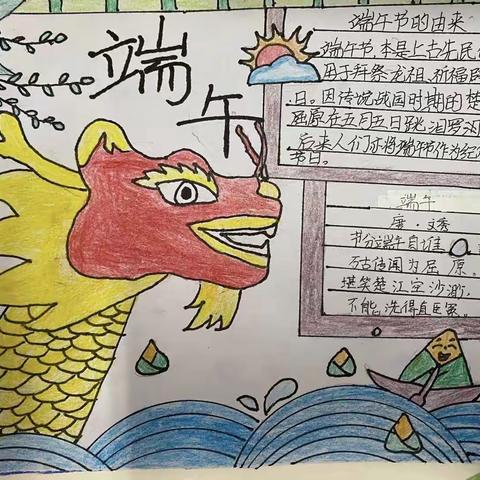 端午
端午节的由来
端午节,本是上古先民
用于拜祭龙祖、祈福
日。因传说战国时期的楚
屈原在五月五日跳汨罗
后来人们亦将端午节作为纪
节日。
端午
唐·文秀
节分端午自谁
万古传闻为屈原。
堪笑楚江空渺渺,
不能洗得直臣冤。